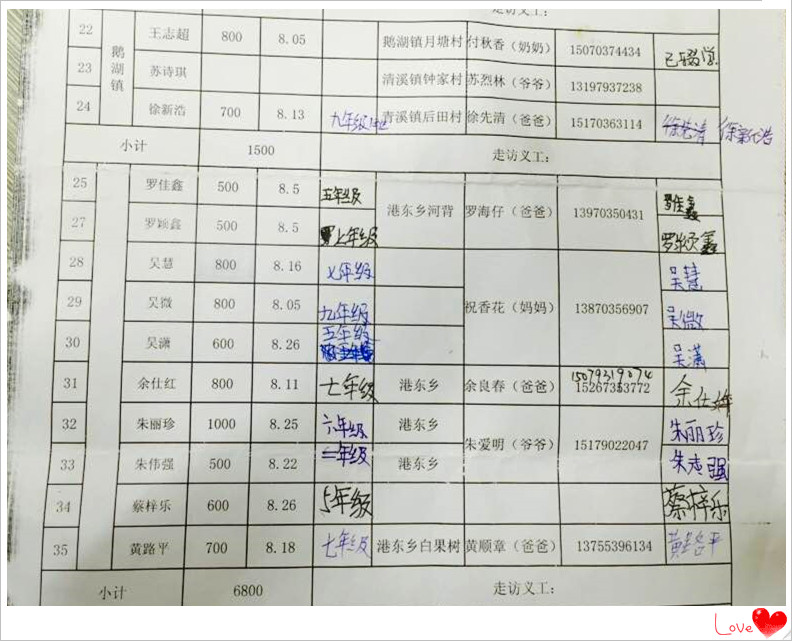 走访义工:
22 王志超 800 8.05 鹅湖镇月塘村 付秋香（奶奶） 15070374434 已辍学
鹅湖镇
23 苏诗琪 清溪镇钟家村 苏烈林（爷爷） 13197937238
24 徐新浩 700 8.13 九年级 青溪镇后田村 徐先清（爸爸） 15170363114 徐先清 徐新浩
小计 1500 走访义工:
25 罗佳鑫 500 8.5 五年级 港东乡河背 罗海仔（爸爸） 13970350431 罗佳鑫
27 罗颖鑫 500 8.5 上年级 罗颖鑫
28 吴慧 800 8.16 七年级 祝香花（妈妈） 13870356907 吴慧
29 吴微 800 8.05 九年级 吴微
30 吴潇 600 8.26 五年级 吴潇
31 余仕红 800 8.11 七年级 港东乡 余良春（爸爸） 15079319074 余仕
15267353772
32 朱丽珍 1000 8.25 六年级 港东乡 朱爱明（爷爷） 15179022047 朱丽珍
33 朱伟强 500 8.22 一年级 港东乡 朱志强
34 蔡梓乐 600 8.26 5年级 蔡梓乐
35 黄路平 700 8.18 七年级 港东乡白果树 黄顺章（爸爸） 13755396134 黄路平
小计 6800 走访义工:
Love